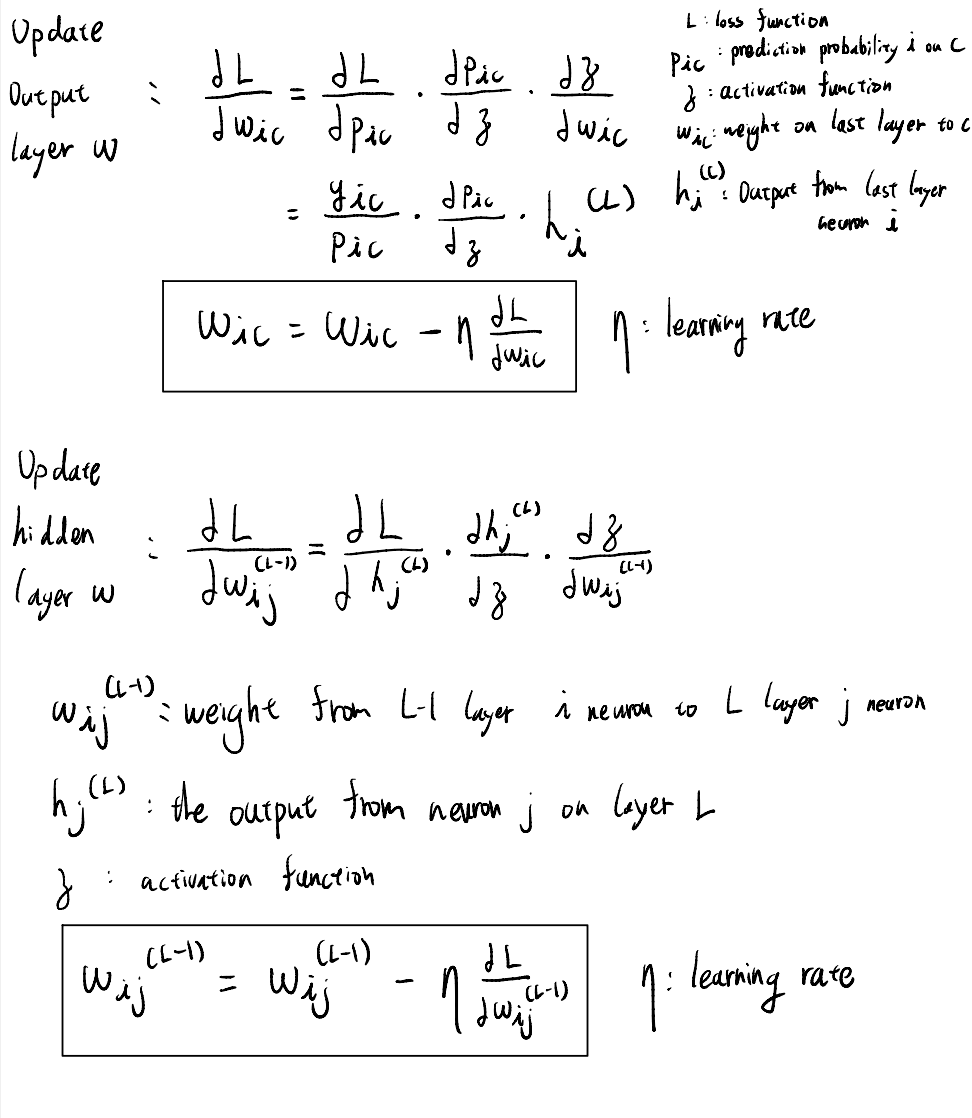 Update
Output
layer w : dL/dw_ic = dL/dp_ic · dp_ic/dz · dz/dw_ic
= y_ic/p_ic · dp_ic/dz · h_i^(L)
L : loss function
p_ic : prediction probability i on c
z : activation function
w_ic : weight on last layer to c
h_i^(L) : Output from last layer
neuron i
w_ic = w_ic - η dL/dw_ic
η : learning rate
Update
hidden
layer w : dL/dw_ij^(L-1) = dL/dh_j^(L) · dh_j^(L)/dz · dz/dw_ij^(L-1)
w_ij^(L-1) : weight from L-1 layer i neuron to L layer j neuron
h_j^(L) : the output from neuron j on layer L
z : activation function
w_ij^(L-1) = w_ij^(L-1) - η dL/dw_ij^(L-1)
η : learning rate